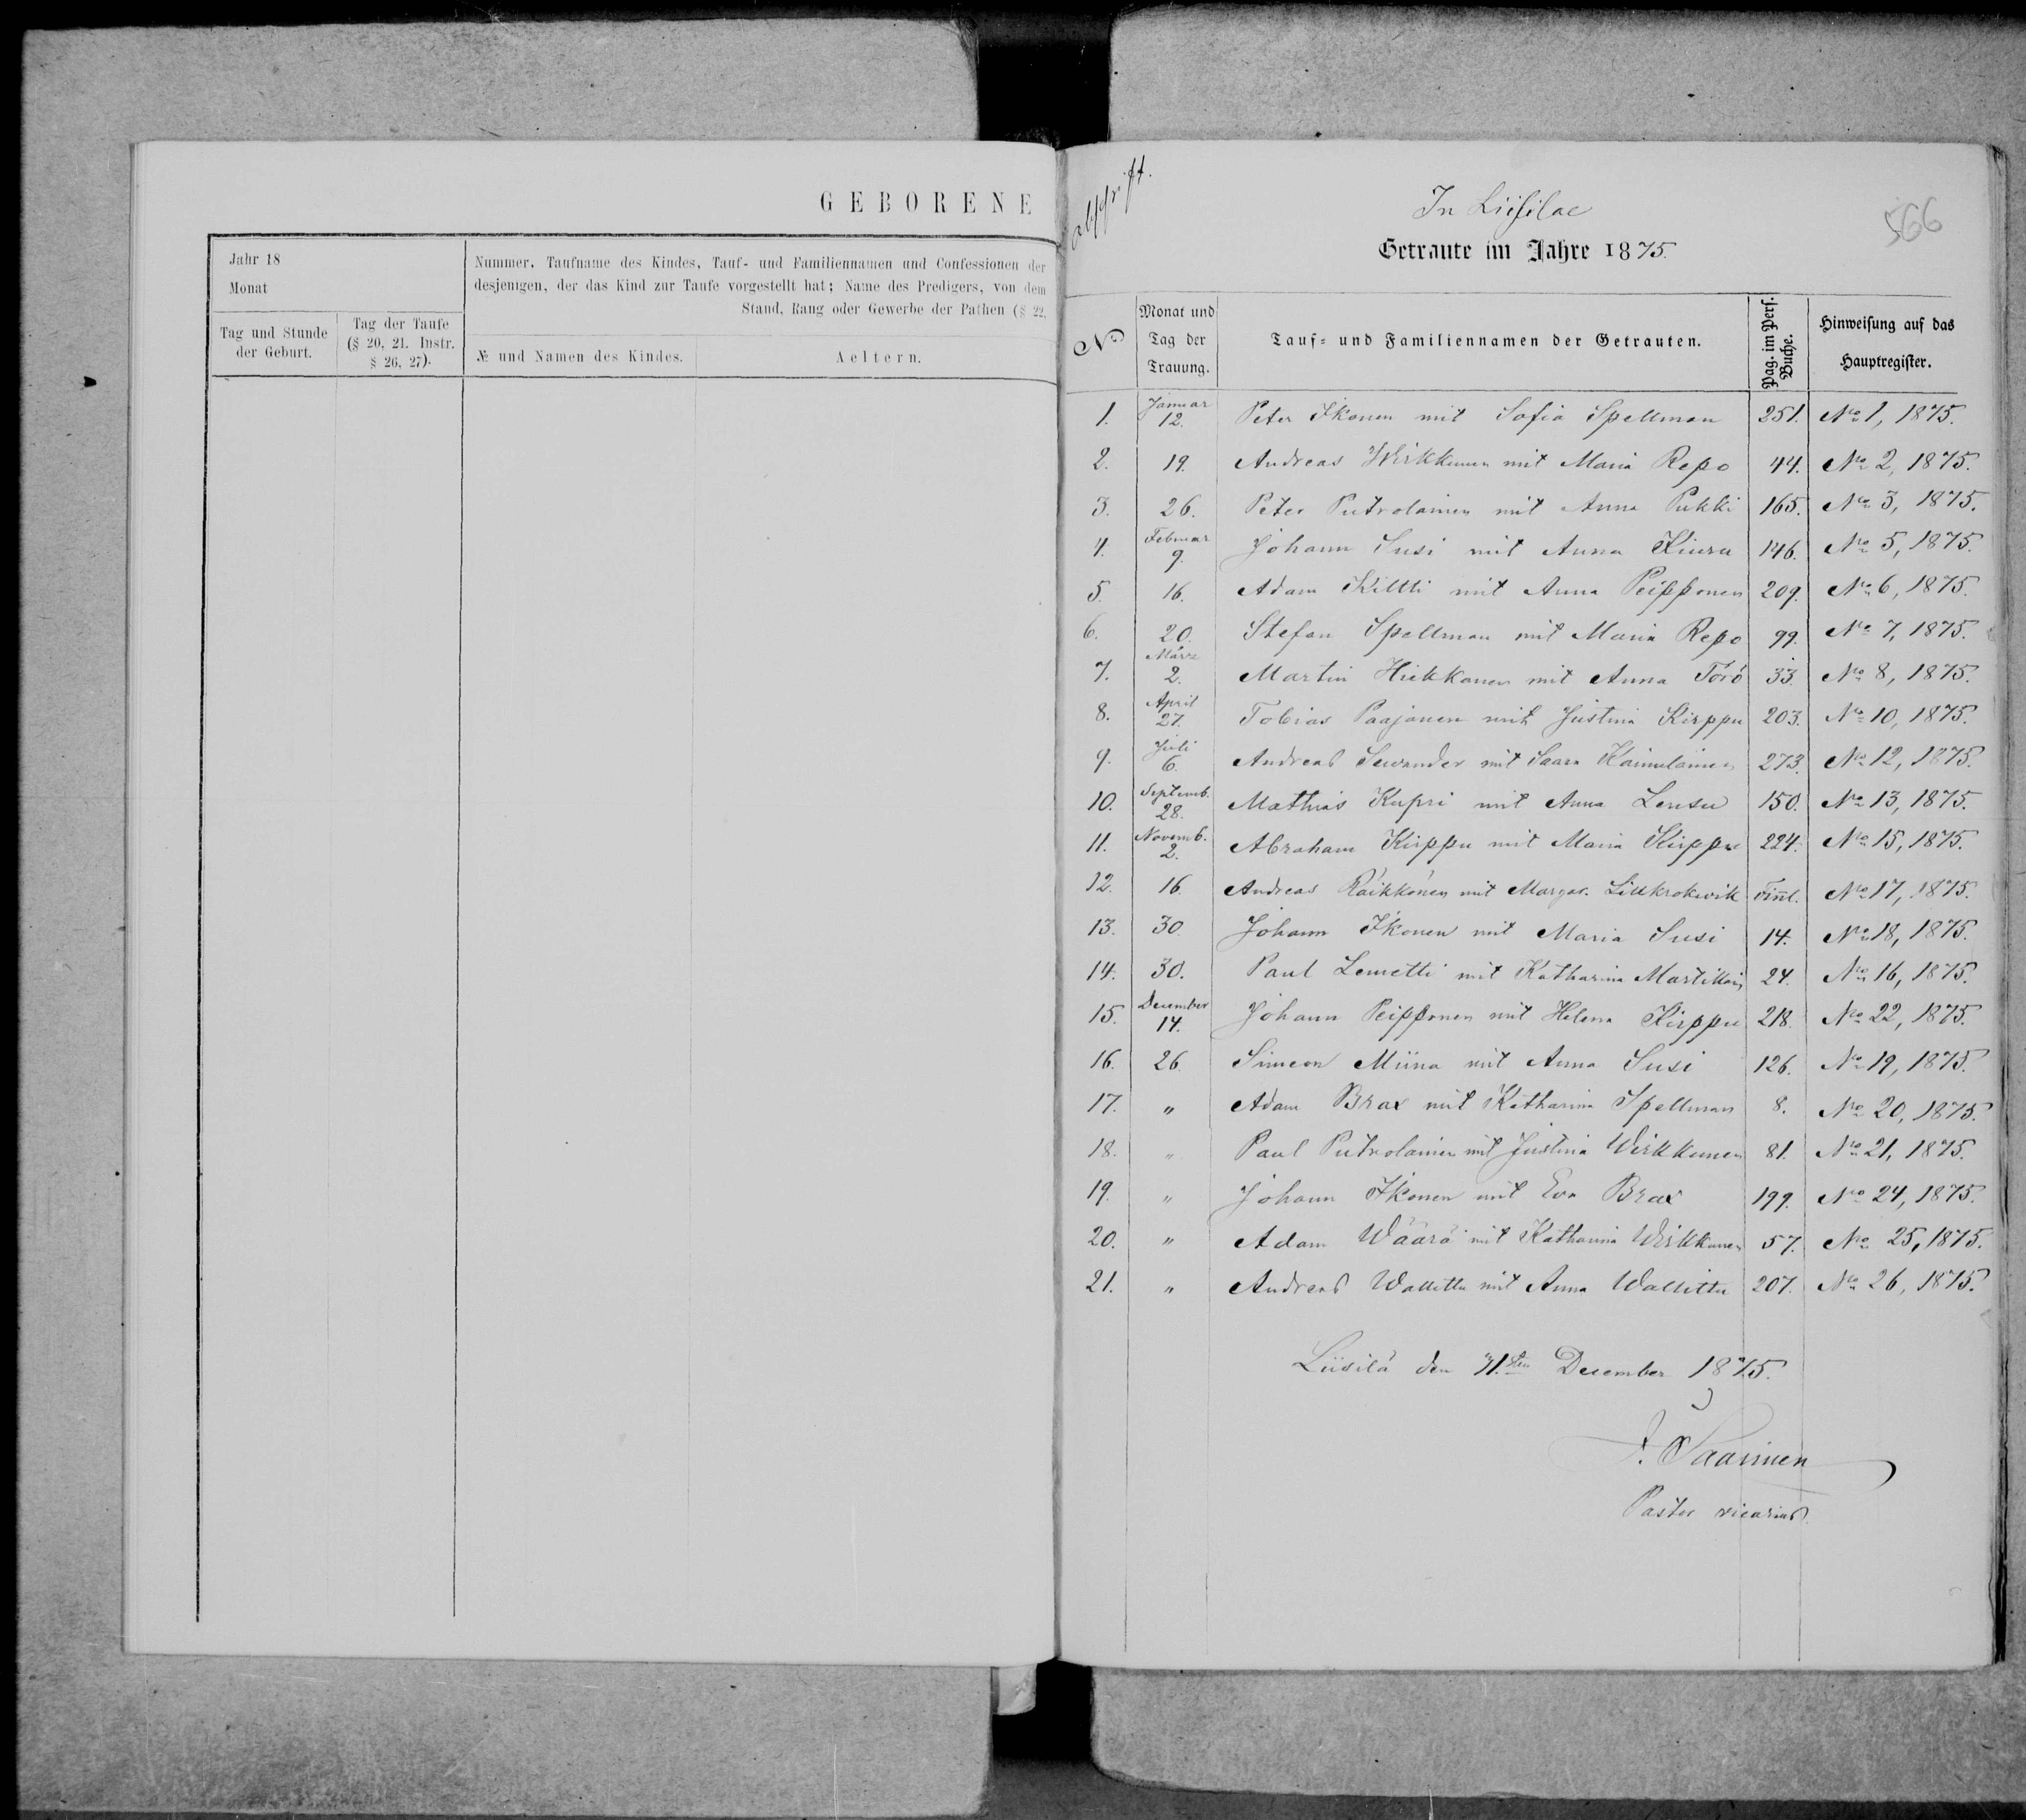 GEBORENE
Jahr 18
Monat
Nummer, Taufname des Kindes, Tauf- und Familiennamen und Confessionen der
desjenigen, der das Kind zur Taufe vorgestellt hat; Name des Predigers, von dem
Stand, Rang oder Gewerbe der Pathen (§ 22,
Tag und Stunde
der Geburt.
Tag der Taufe
(§ 20, 21. Instr.
§ 26, 27).
№ und Namen des Kindes.
Aeltern.
In Liisilae
566
Getraute im Jahre 1875.
No
Monat und
Tag der
Trauung.
Tauf- und Familiennamen der Getrauten.
Pag. im Pers.
Buche.
Hinweisung auf das
Hauptregister.
1. Januar 12. Peter Ikonen mit Sofia Spellman 251. No 1, 1875.
2. 19. Andreas Wirkkunen mit Maria Repo 44. No 2, 1875.
3. 26. Peter Putrolainen mit Anna Pukki 165. No 3, 1875.
4. Februar 9. Johann Susi mit Anna Kiuru 146. No 5, 1875.
5. 16. Adam Kiltti mit Anna Peipponen 209. No 6, 1875.
6. 20. Stefan Spellman mit Maria Repo 99. No 7, 1875.
7. März 2. Martin Hiekkanen mit Anna Törö 33. No 8, 1875.
8. April 27. Tobias Paajanen mit Justina Kirppu 203. No 10, 1875.
9. Juli 6. Andreas Sewander mit Saara Kaimelainen 273. No 12, 1875.
10. Septemb. 28. Mathias Kupri mit Anna Lensu 150. No 13, 1875.
11. Novemb. 2. Abraham Kirppu mit Maria Kirppu 224. No 15, 1875.
12. 16. Andreas Räikkönen mit Margar. Lillkrokwik Finl. No 17, 1875.
13. 30. Johann Ikonen mit Maria Susi 14. No 18, 1875.
14. 30. Paul Lemetti mit Katharina Martikain 24. No 16, 1875.
15. December 14. Johann Peipponen mit Helena Kirppu 218. No 22, 1875.
16. 26. Simeon Miina mit Anna Susi 126. No 19, 1875.
17. " Adam Brax mit Katharina Spellman 8. No 20, 1875.
18. " Paul Putrolainen mit Justina Wirkkunen 81. No 21, 1875.
19. " Johann Ikonen mit Eva Brax 199. No 24, 1875.
20. " Adam Wäärä mit Katharina Wirkkunen 57. No 25, 1875.
21. " Andreas Wallittu mit Anna Wallittu 207. No 26, 1875.
Liisilä den 31.sten December 1875.
Saarinen
Pastor vicarius.